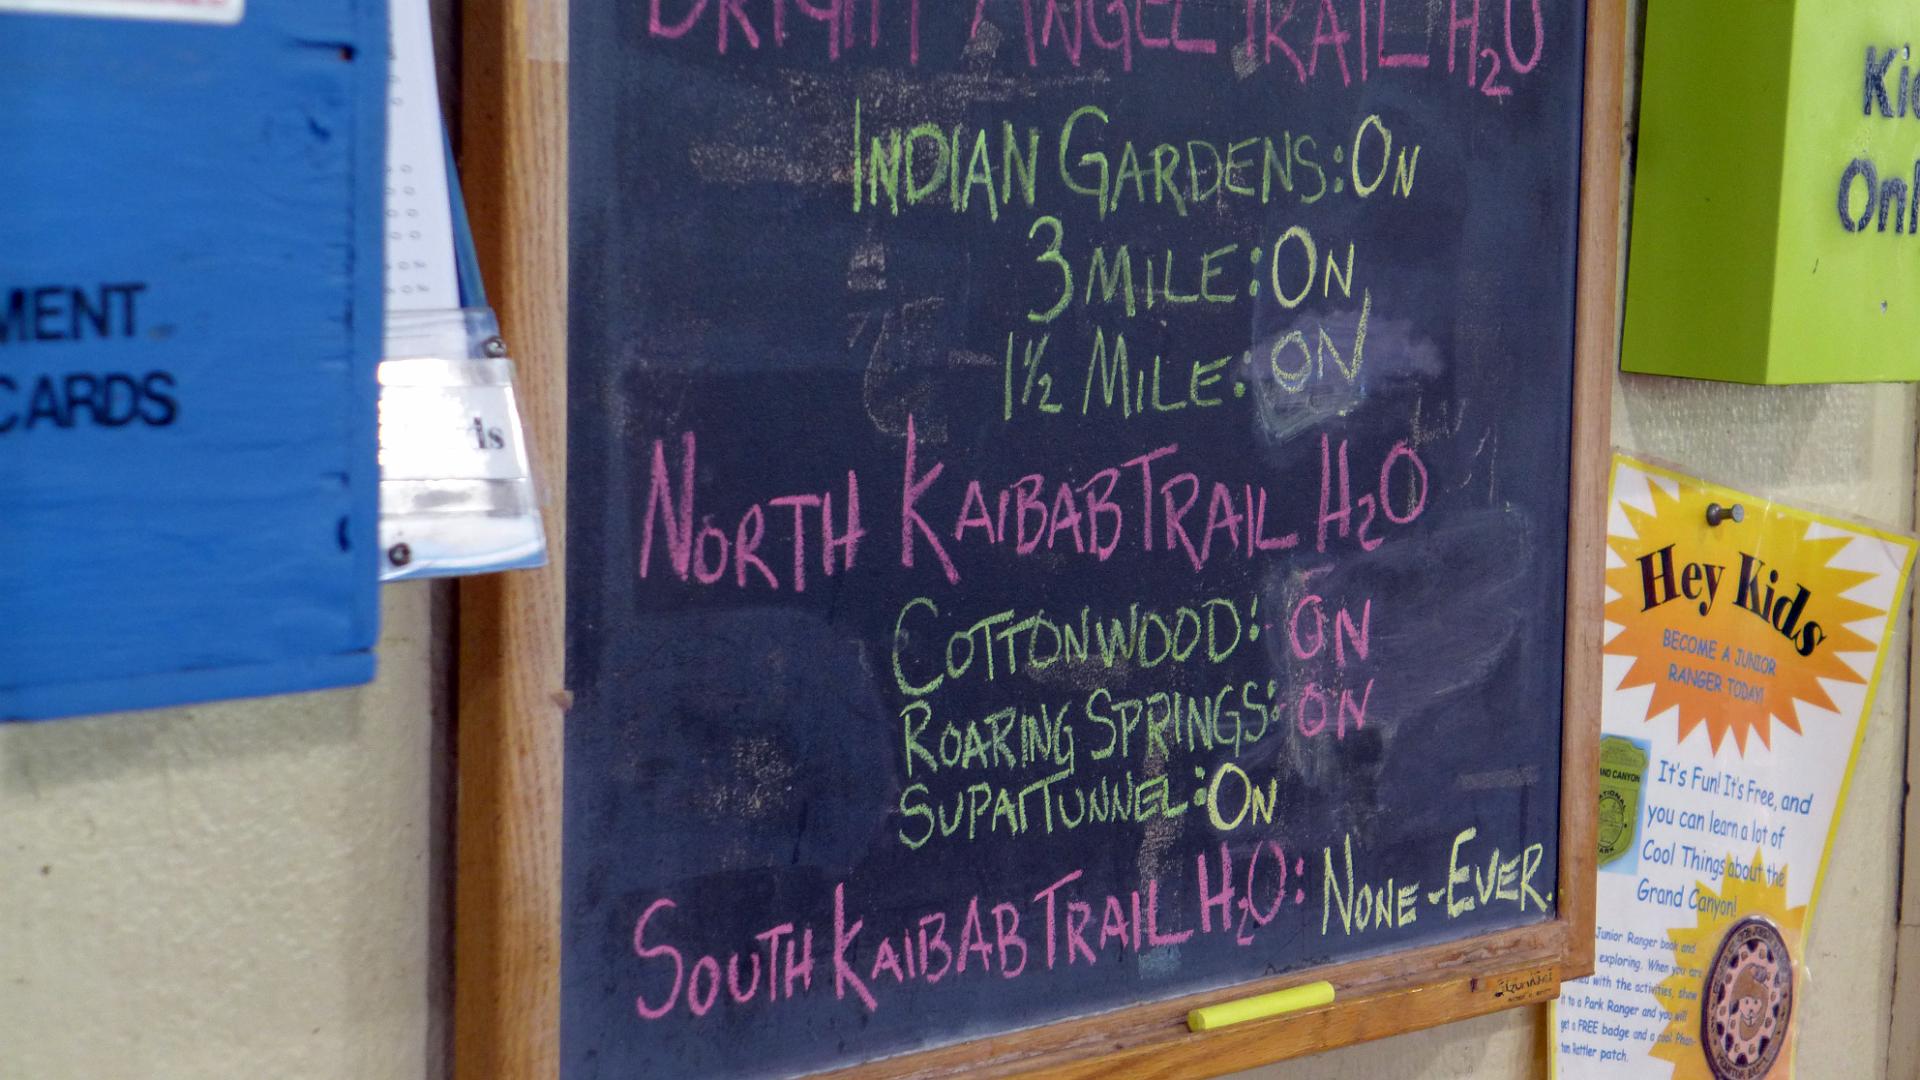 BRIGHT ANGEL TRAIL H2O
INDIAN GARDENS: ON
3 MILE: ON
1½ MILE: ON
NORTH KAIBAB TRAIL H2O
COTTONWOOD: ON
ROARING SPRINGS: ON
SUPAI TUNNEL: ON
SOUTH KAIBAB TRAIL H2O: NONE-EVER.
MENT
CARDS
Hey Kids
BECOME A JUNIOR
RANGER TODAY!
It's Fun! It's Free, and
you can learn a lot of
Cool Things about the
Grand Canyon!
Junior Ranger book and
exploring. When you are
with the activities, show
it to a Park Ranger and you will
get a FREE badge and a cool Phan-
tom Rattler patch.